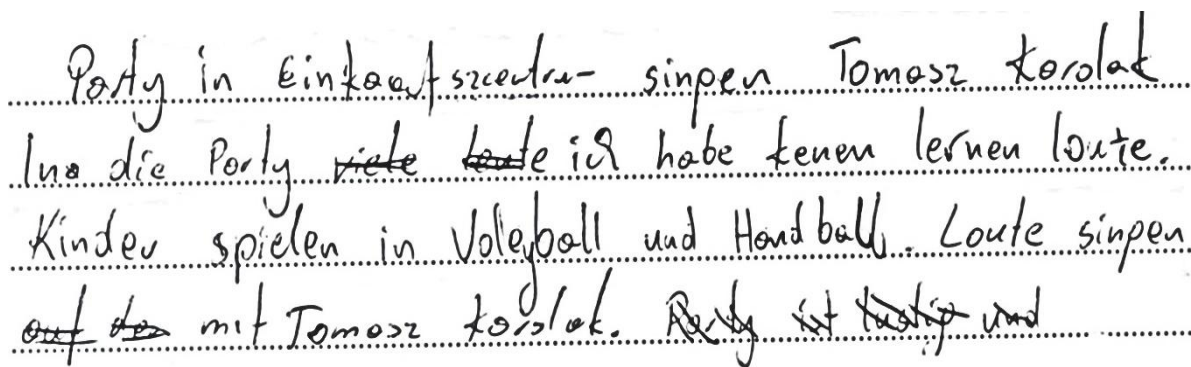 Party in Einkaufszcentrum singen Tomasz Korolak
Ina die Party viele leute ich habe kenen lernen loute.
Kinder spielen in Voleyball und Handball. Loute singen
auf das mit Tomasz Korolak. Party ist lustig und